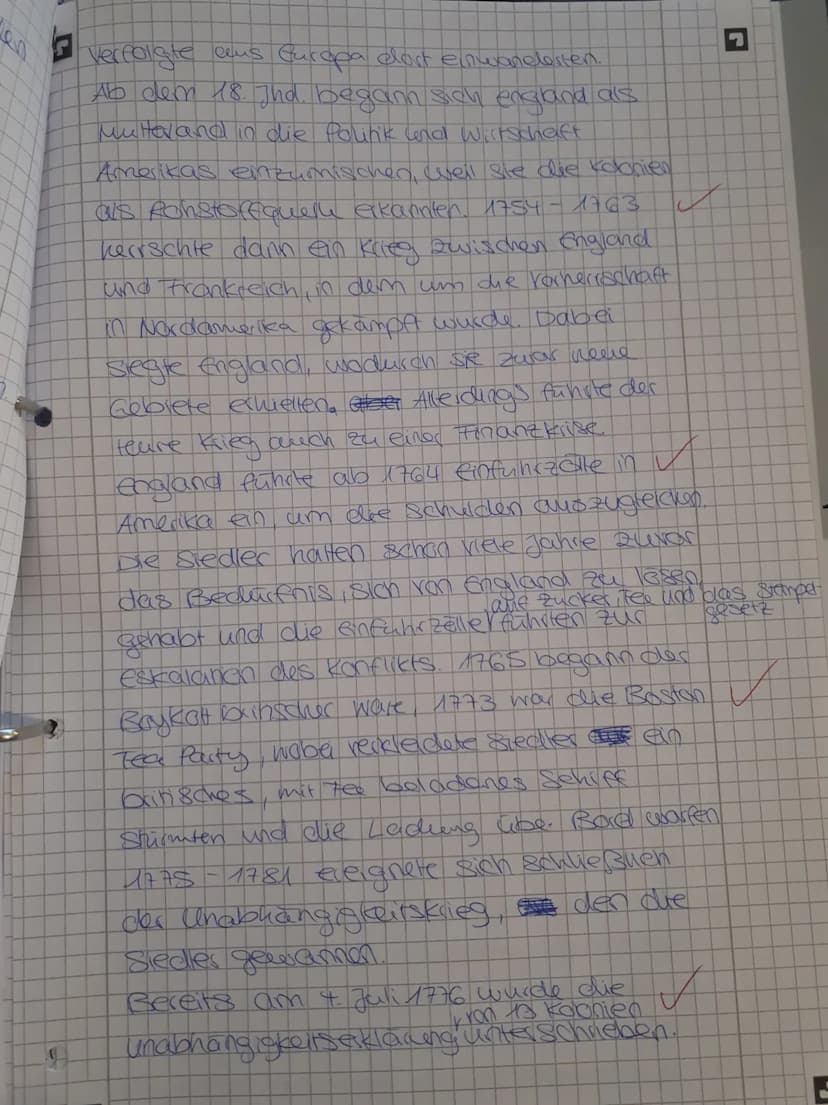 verfolgte aus Europa dort einwanderten.
Ab dem 18. Jhd. begann sich england als
Mutterland in die Politik und Wirtschaft
Amerikas einzumischen, weil sie die Kolonien
als Rohstoffquelle erkannten. 1754 - 1763
herrschte dann ein Krieg zwischen England
und Frankreich, in dem um die Vorherrschaft
in Nordamerika gekämpft wurde. Dabei
siegte England, wodurch sie zwar neue
Gebiete erhielten. Allerdings führte der
teure Krieg auch zu einer Finanzkrise.
England führte ab 1764 einfuhrzölle in
Amerika ein, um die Schulden auszugleichen.
Die Siedler hatten schon viele Jahre zuvor
das Bedürfnis, sich von England zu lösen,
auf Zucker, Tee und das Stempel
gesetz
gehabt und die einfuhrzölle führten zur
eskalation des Konflikts. 1765 begann der
Boykott britischer Ware, 1773 war die Boston
Tea Party, wobei verkleidete Siedler ein
britisches, mit Tee beladenes Schiff
stürmten und die Ladung über Bord warfen
1775 - 1781 ereignete sich schließlich
der Unabhängigkeitskrieg, den die
Siedler gewannen.
Bereits am 4. Juli 1776 wurde die
von 13 Kolonien
unabhängigkeitserklärung unterschrieben.